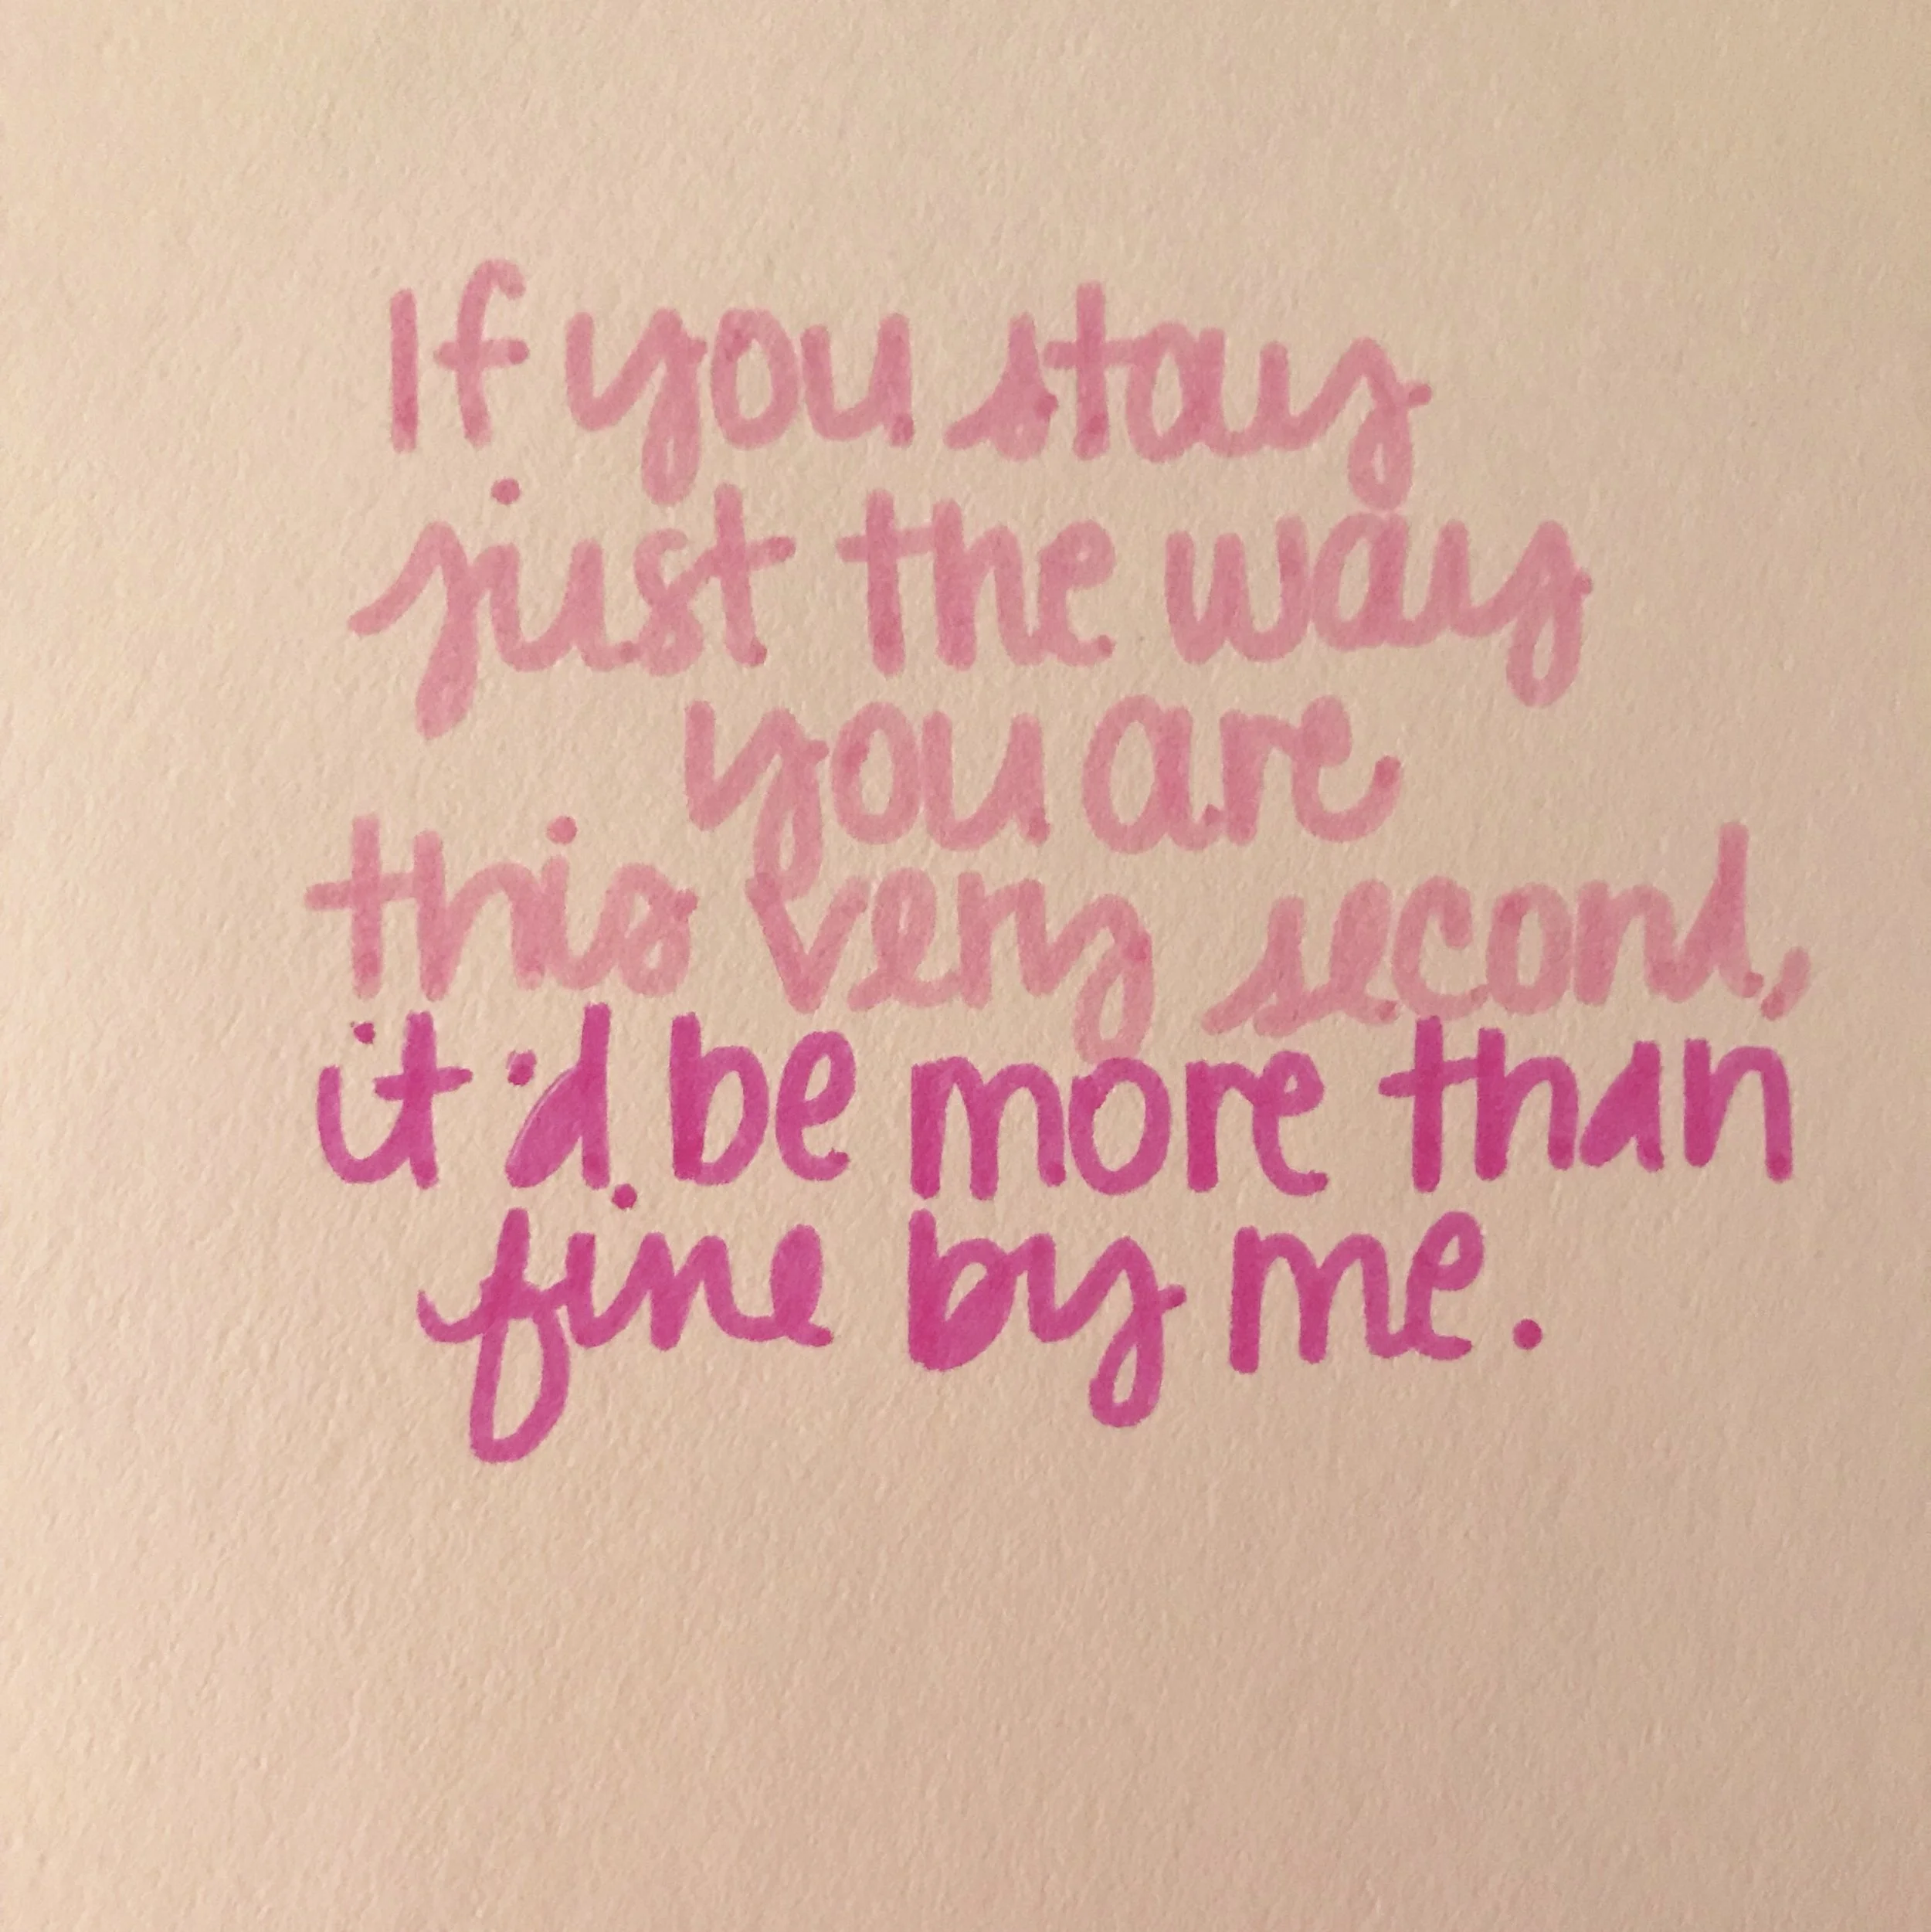 If you stay
just the way
you are
this very second,
it'd be more than
fine by me.